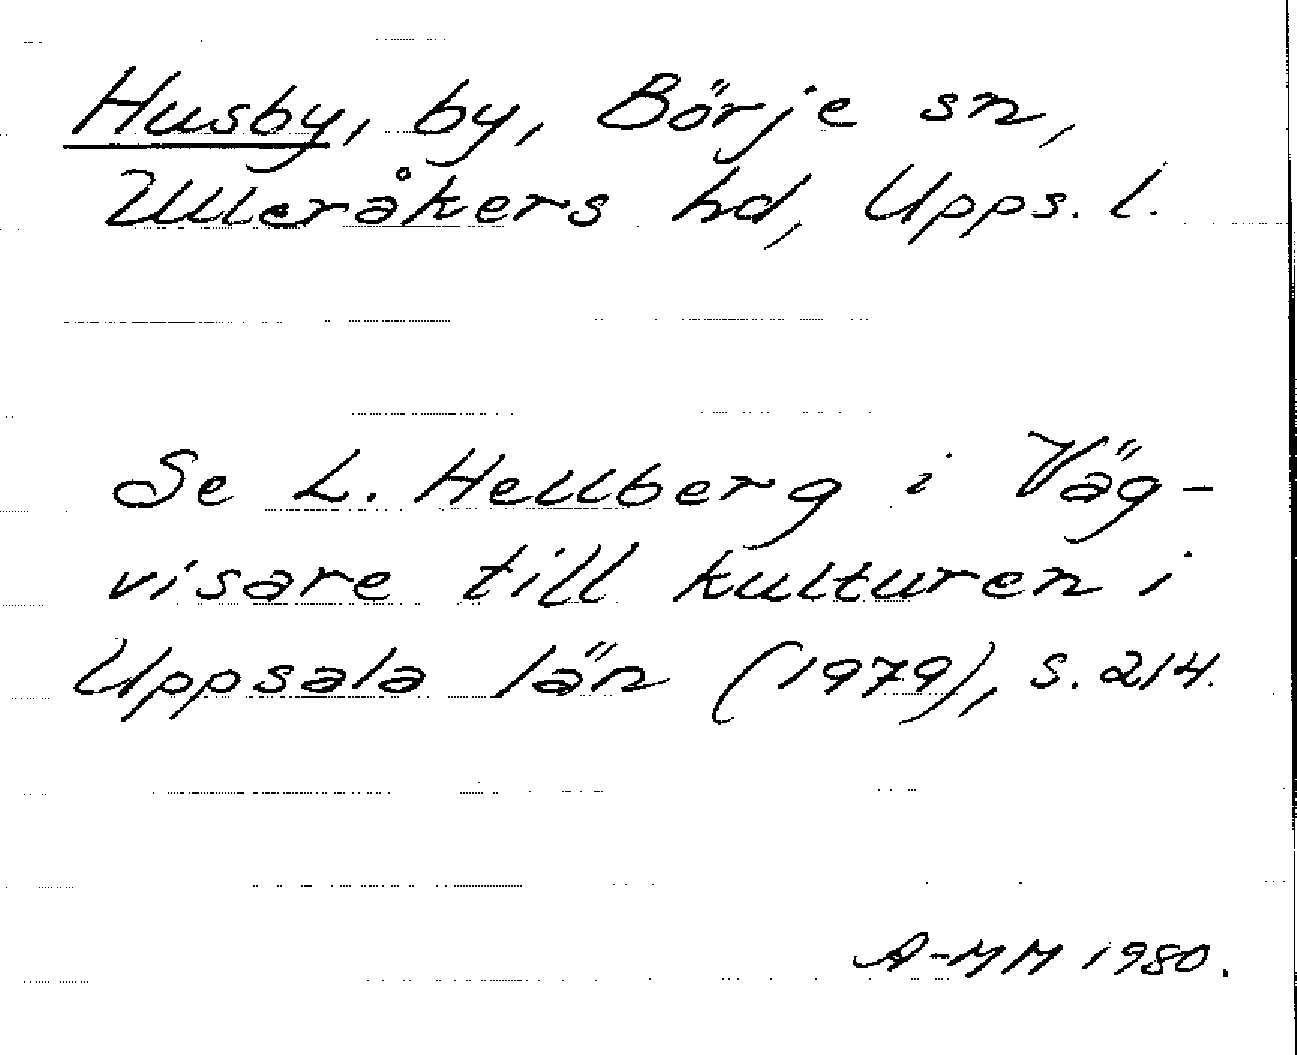 Husby, by, Börje sn,
Ulleråkers hd, Upps. l.
Se L. Hellberg i Väg-
visare till kulturen i
Uppsala län (1979), s. 214.
A-MM 1980.